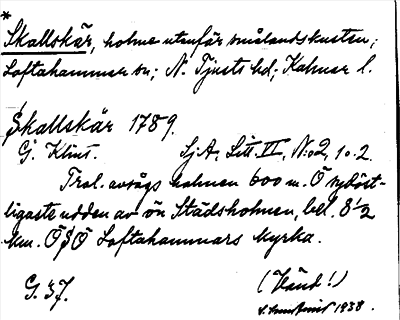 *
Skallskär, holme utanför smålandskusten;
Loftahammar sn; N. Tjusts hd; Kalmar l.
Skallskär 1789.
G. Klint. SjA, Litt. VI, N:o 2, 1 o. 2.
Trol. avsågs holmen 600 m. Ö sydöst-
ligaste udden av ön Städsholmen, bel. 8 1/2
km. ÖSÖ Loftahammars kyrka.
G. 37. (Vänd!)
1938.